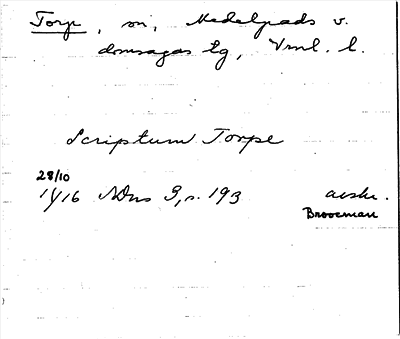 Torp, sn, Medelpads v.
domsagas tg, Vrnl. l.
Scriptum Torpe
28/10
1416 NDns 3, s. 193 avskr.
Brooeman